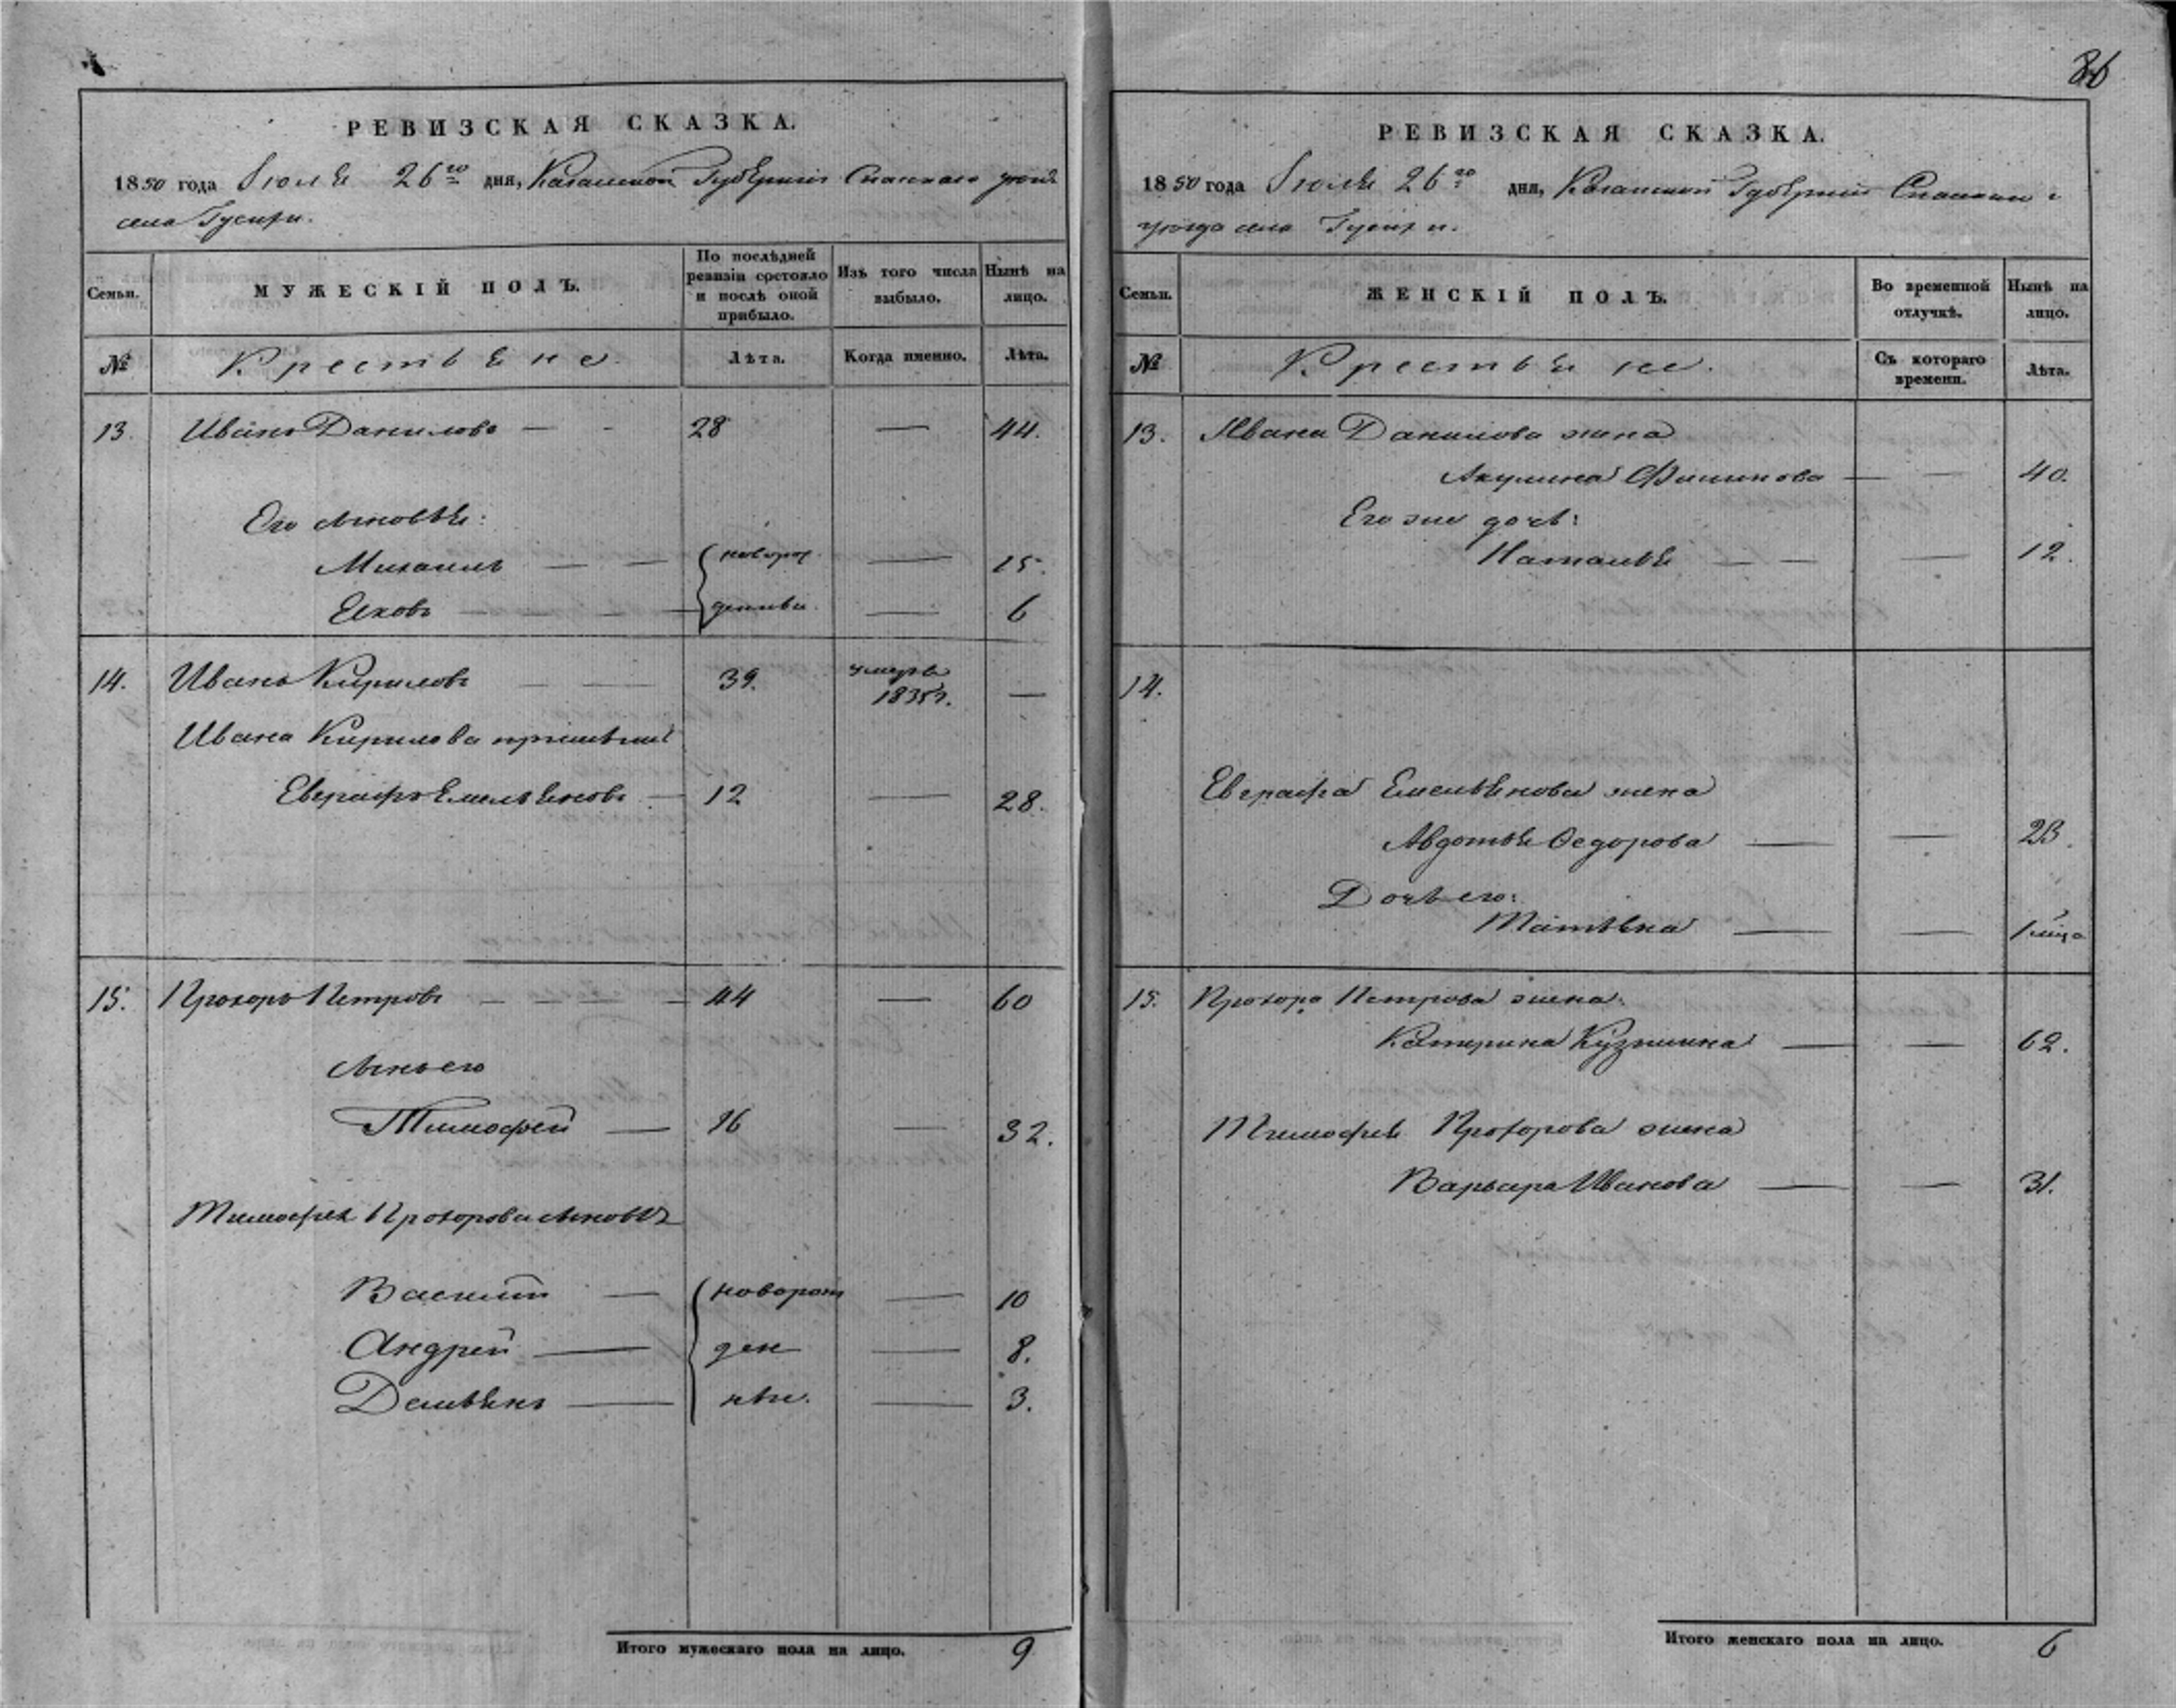 86
РЕВИЗСКАЯ СКАЗКА.
1850 года Июля 26го дня, Казанской Губернiи Спаскаго уезда
села Гусихи.
Семьи.
МУЖЕСКІЙ ПОЛЪ.
По послѣдней ревизіи состояло и послѣ оной прибыло.
Изъ того числа выбыло.
Нынѣ на лицо.
№
Крестьяне.
Лѣта.
Когда именно.
Лѣта.
13. Иванъ Даниловъ — - 28 — 44.
Его сыновья:
Михаилъ — — новорож — 15.
Яковъ — - — денные. — 6
14. Иванъ Кириловъ — — 39. умеръ 1835г. —
Ивана Кирилова
Евграфъ Емельяновъ — 12 — 28.
15. Прохоръ Петровъ — — — — 44 — 60
Сынъ его
Тимофей — 16 — 32.
Тимофея Прохорова сыновья
Василий — новорож — 10
Андрей — ден — 8.
Демьянъ — ные. — 3.
Итого мужескаго пола на лицо. 9
РЕВИЗСКАЯ СКАЗКА.
1850 года Июля 26го дня, Казанской Губернiи Спаскаго
уезда села Гусихи.
Семьи.
ЖЕНСКІЙ ПОЛЪ.
Во временной отлучкѣ.
Нынѣ на лицо.
№
Крестьяне.
Съ котораго времени.
Лѣта.
13. Ивана Данилова жена
Акулина Филипова — — 40.
Его же дочь:
Наталья — — — 12.
14.
Евграфа Емельянова жена
Авдотья Ѳедорова — — 23.
Дочь его:
Татьяна — — 1 мѣца
15. Прохора Петрова жена.
Катерина Кузмина — — 62.
Тимофея Прохорова жена
Варвара Иванова — — 31.
Итого женскаго пола на лицо. 6